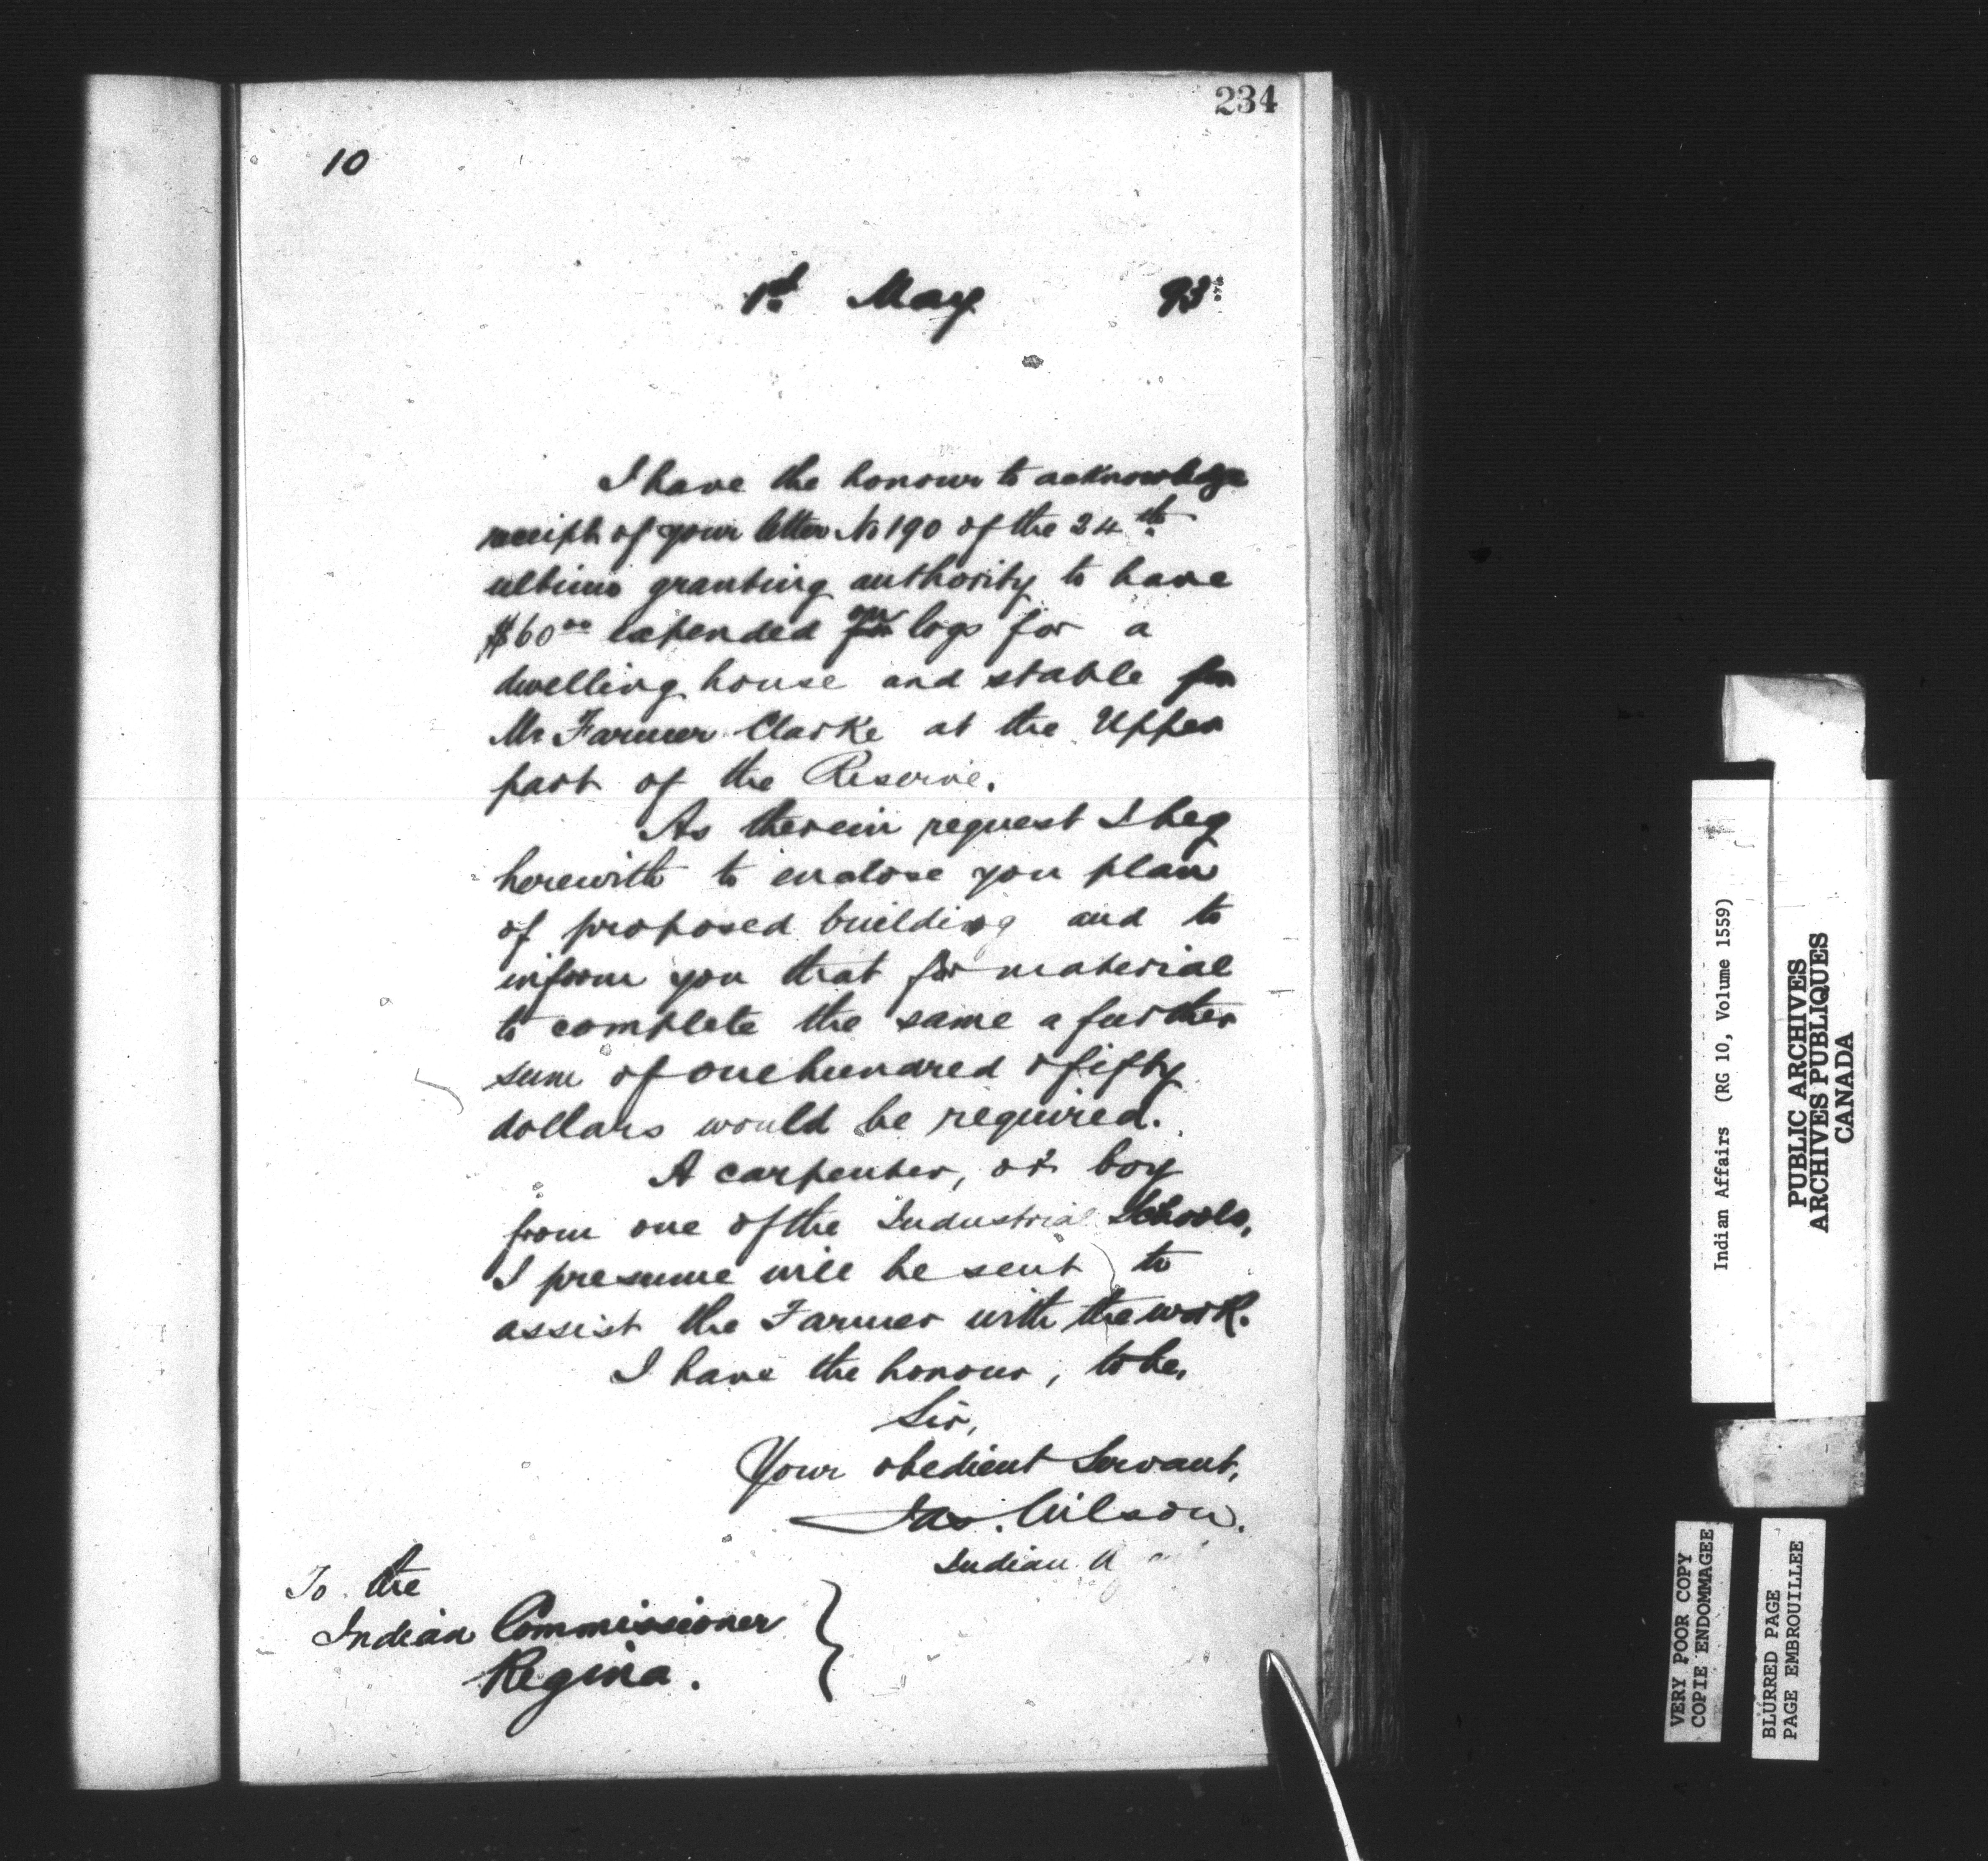 234
10
1st May 93
I have the honour to acknowledge
receipt of your letter No 190 of the 24th
ultimo granting authority to have
$60.00 expended on logs for a
dwelling house and stable for
Mr Farmer Clarke at the Upper
part of the Reserve.
As therein request I beg
herewith to enclose you plan
of proposed building and to
inform you that for material
to complete the same a further
sum of one hundred & fifty
dollars would be required.
A carpenter, or boy
from one of the Industrial Schools,
I presume will be sent to
assist the Farmer with the work.
I have the honour, to be,
Sir,
Your obedient Servant,
Jas. Wilson.
Indian A
To the
Indian Commissioner
Regina.
Indian Affairs (RG 10, Volume 1559)
PUBLIC ARCHIVES
ARCHIVES PUBLIQUES
CANADA
VERY POOR COPY
COPIE ENDOMMAGEE
BLURRED PAGE
PAGE EMBROUILLEE